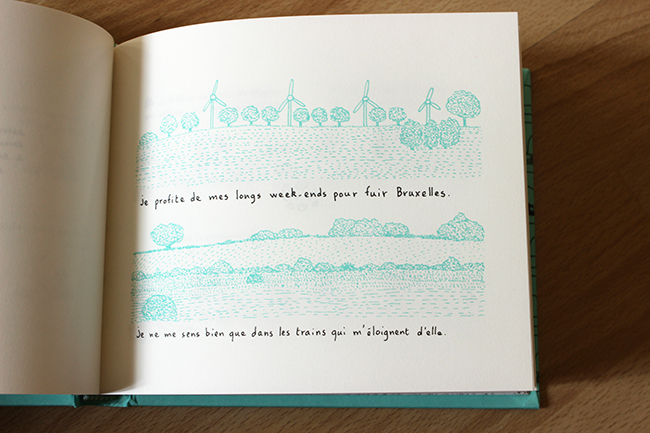 je profite de mes longs week-ends pour fuir Bruxelles.
je ne me sens bien que dans les trains qui m'éloignent d'elle.